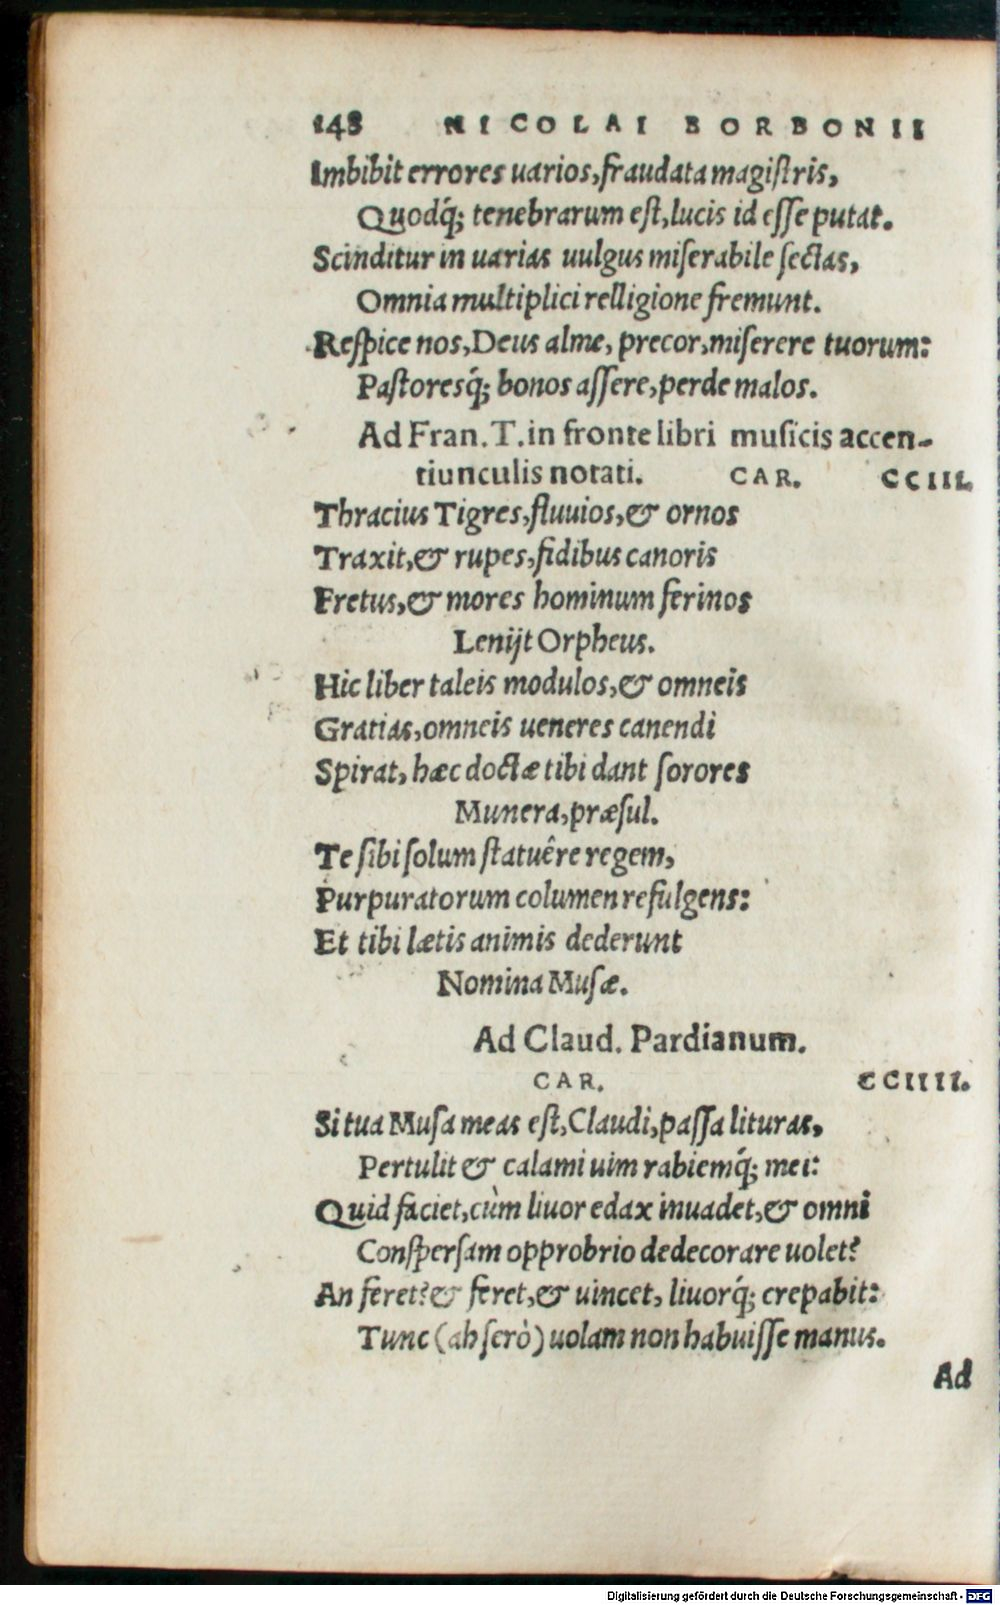 148 NICOLAI BORBONII
Imbibit errores uarios, fraudata magiſtris,
Quodq́; tenebrarum eſt, lucis id eſſe putat.
Scinditur in uarias uulgus miſerabile ſectas,
Omnia multiplici relligione fremunt.
Reſpice nos, Deus alme, precor, miſerere tuorum:
Paſtoresq́; bonos aſſere, perde malos.
Ad Fran. T. in fronte libri muſicis accen-
tiunculis notati. CAR. CCIII.
Thracius Tigres, fluuios, & ornos
Traxit, & rupes, fidibus canoris
Fretus, & mores hominum ferinos
Lenijt Orpheus.
Hic liber taleis modulos, & omneis
Gratias, omneis ueneres canendi
Spirat, hæc doctæ tibi dant ſorores
Munera, præſul.
Te ſibi ſolum ſtatuêre regem,
Purpuratorum columen refulgens:
Et tibi lætis animis dederunt
Nomina Muſæ.
Ad Claud. Pardianum.
CAR. CCIIII.
Si tua Muſa meas eſt, Claudi, paſſa lituras,
Pertulit & calami uim rabiemq́; mei:
Quid faciet, cùm liuor edax inuadet, & omni
Conſperſam opprobrio dedecorare uolet?
An feret? & feret, & uincet, liuorq́; crepabit:
Tunc (ah ſerò) uolam non habuiſſe manus.
Ad
Digitalisierung gefördert durch die Deutsche Forschungsgemeinschaft - DFG